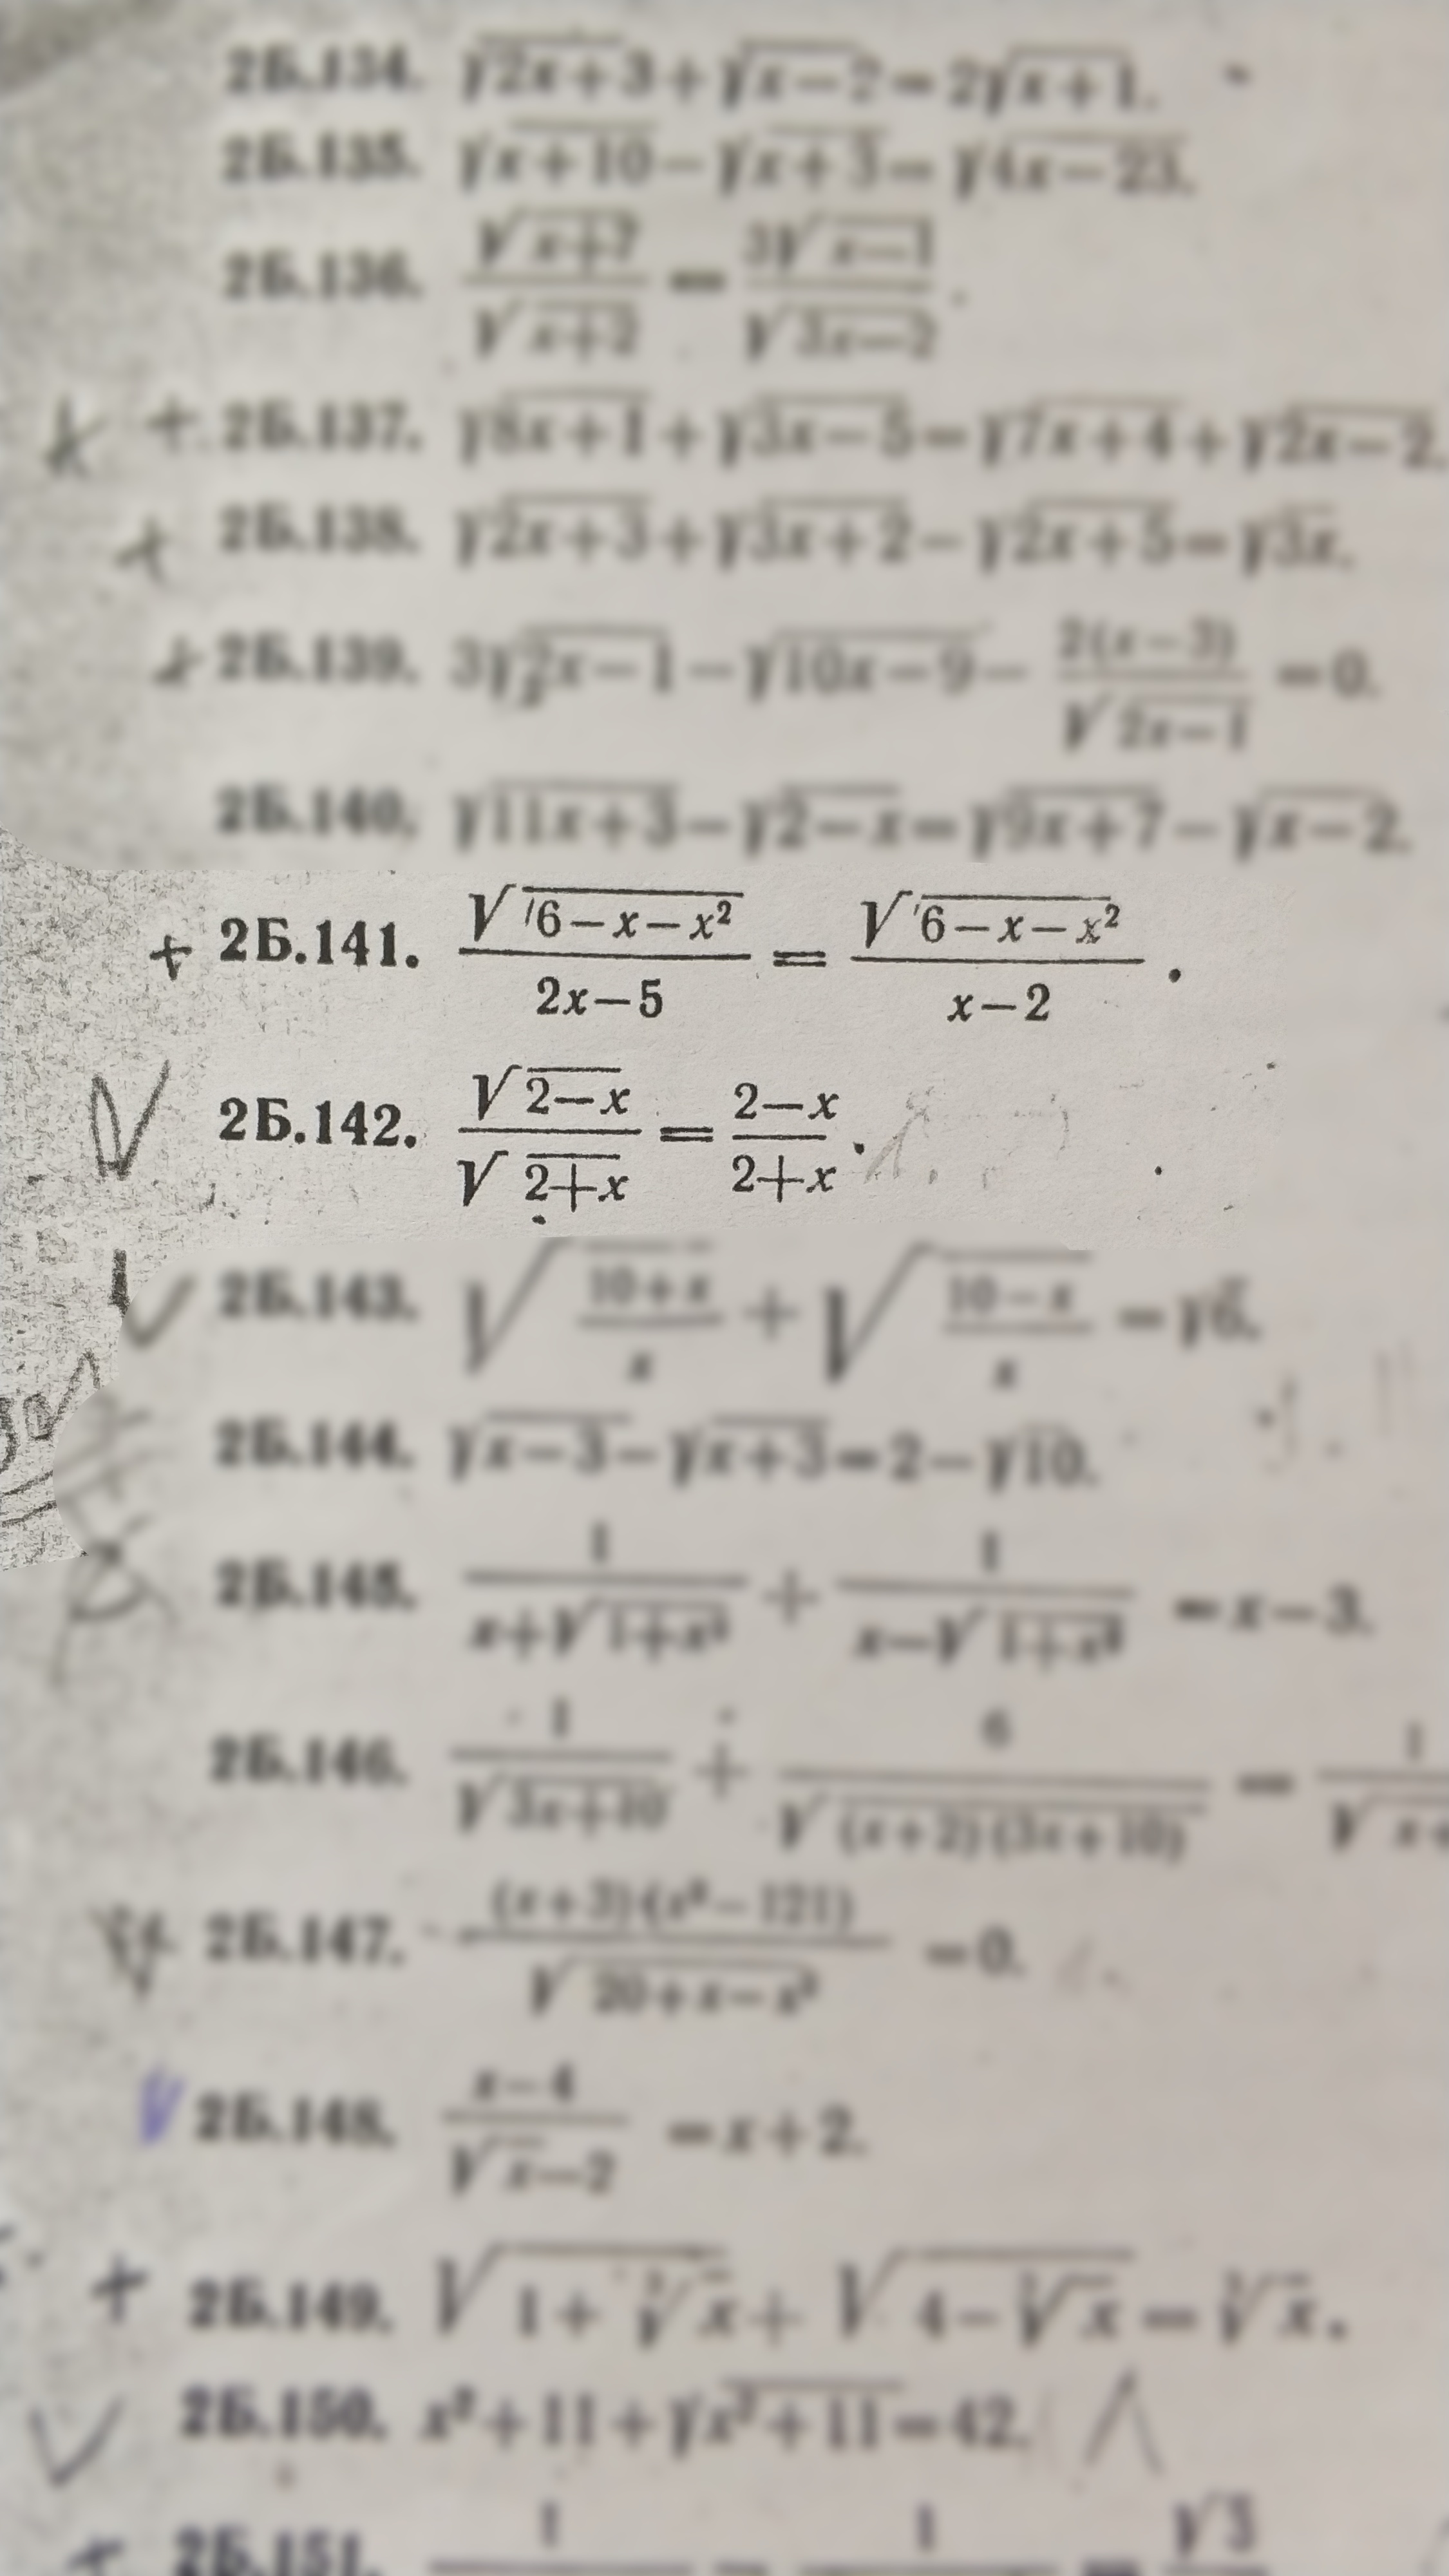 2Б.134. √2x+3+√x−2=2√x+1.
2Б.135. √x+10−√x+3=√4x−23.
2Б.136. √x+7/√x+2 = 3√x−1/√3x−2.
+ 2Б.137. √8x+1+√3x−5=√7x+4+√2x−2.
+ 2Б.138. √2x+3+√3x+2−√2x+5=√3x.
+ 2Б.139. 3√2x−1−√10x−9− 2(x−3)/√2x−1 =0.
2Б.140. √11x+3−√2−x=√9x+7−√x−2.
+ 2Б.141. √6−x−x²/2x−5 = √6−x−x²/x−2.
2Б.142. √2−x/√2+x = 2−x/2+x.
2Б.143. √10+x/x + √10−x/x =√6.
2Б.144. √x−3−√x+3=2−√10.
2Б.145. 1/x+√1+x² + 1/x−√1+x² =x−3.
2Б.146. 1/√3x+10 + 6/√(x+2)(3x+10) = 1/√x+
2Б.147. (x+3)(x²−121)/√20+x−x² =0.
2Б.148. x−4/√x−2 =x+2.
+ 2Б.149. √1+∛x+ √4−∛x=∛x.
2Б.150. x²+11+√x²+11=42.
+ 2Б.151. 1 1 √3